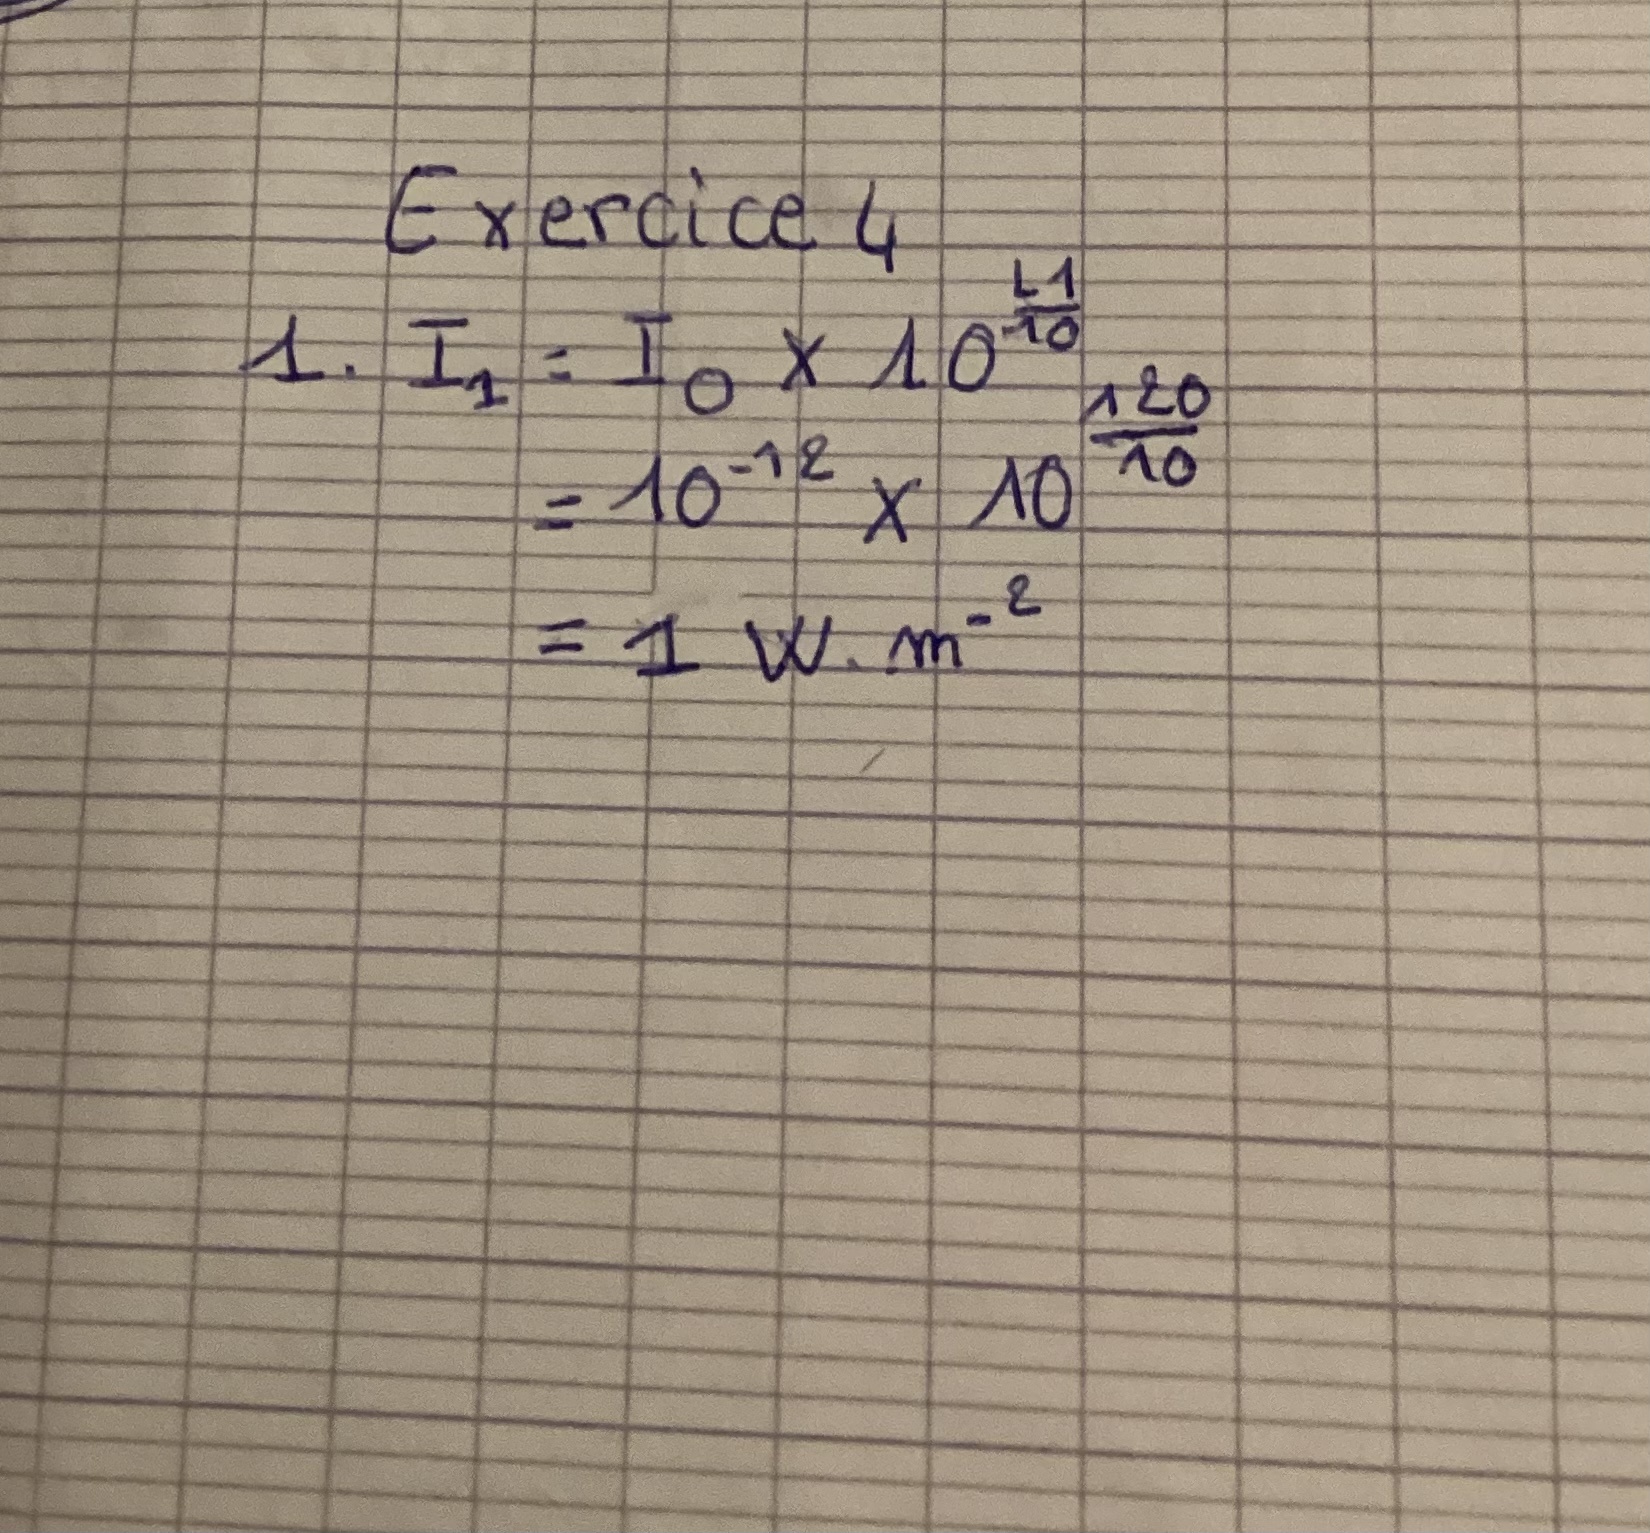 Exercice 4
1. I₁ = I₀ × 10^(L1/10)
= 10⁻¹² × 10^(120/10)
= 1 W.m⁻²